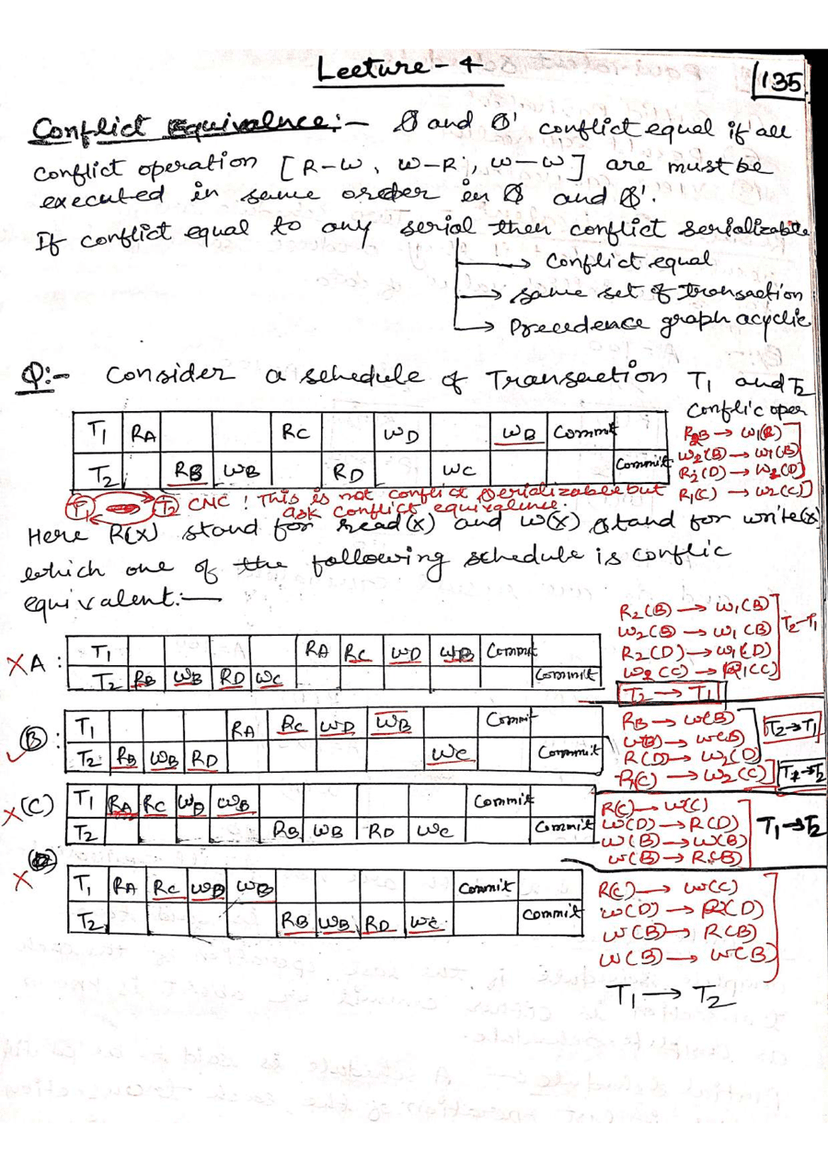 Lecture - 4
135
Conflict Equivalnce:- S and S' conflict equal if all
conflict operation [R-W, W-R, W-W] are must be
executed in same order in S and S'.
If conflict equal to any serial then conflict serializable
→ Conflict equal
→ Same set of transaction
→ Precedence graph acyclic
Q:- Consider a schedule of Transaction T1 and T2
Conflic oper
T1 RA RC WD WB Commit
T2 RB WB RD WC Commit
R2B → W1(B)
W2(B) → W1(B)
R2(D) → W2(D)
R1(C) → W2(C)
T1 T2 CNC! This is not conflict serializable but
ask conflict equivalence.
Here R(X) stand for read(x) and W(X) stand for write(x)
which one of the following schedule is conflic
equivalent:-
XA: T1 RA RC WD WB Commit
T2 RB WB RD WC Commit
R2(B) → W1(B)
W2(B) → W1(B)
R2(D) → W1(D)
W2(C) → R1(C)
T2→T1
T2 → T1
B: T1 RA RC WD WB Commit
T2 RB WB RD WC Commit
RB → W(B)
W(B) → W(B)
R(D) → W2(D)
R1(C) → W2(C)
T2→T1
T1→T2
X(C) T1 RA RC WD WB Commit
T2 RB WB RD WC Commit
R(C) → W(C)
W(D) → R(D)
W(B) → W(B)
W(B) → R(B)
T1→T2
X (D) T1 RA RC WD WB Commit
T2 RB WB RD WC Commit
R(C) → W(C)
W(D) → R(D)
W(B) → R(B)
W(B) → W(B)
T1 → T2